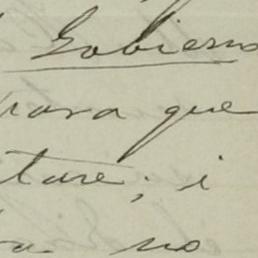 Gobierno
para que
tare; i
no